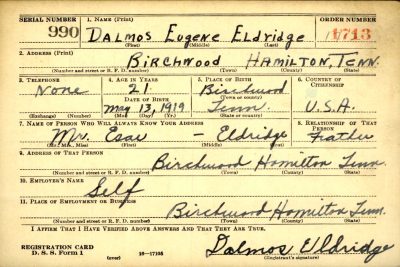 SERIAL NUMBER 1. NAME (Print) ORDER NUMBER
990 DALMOS EUGENE ELDRIDGE 1713
(First) (Middle) (Last)
2. ADDRESS (Print)
BIRCHWOOD HAMILTON, TENN.
(Number and street or R. F. D. number) (Town) (County) (State)
3. TELEPHONE 4. AGE IN YEARS 5. PLACE OF BIRTH 6. COUNTRY OF CITIZENSHIP
None 21 Birchwood
DATE OF BIRTH (Town or county)
May 13, 1919 Tenn. U.S.A.
(Exchange) (Number) (Mo.) (Day) (Yr.) (State or country)
7. NAME OF PERSON WHO WILL ALWAYS KNOW YOUR ADDRESS 8. RELATIONSHIP OF THAT PERSON
Mr. Esau – Eldridge Father
(Mr., Mrs., Miss) (First) (Middle) (Last)
9. ADDRESS OF THAT PERSON
Birchwood Hamilton Tenn.
(Number and street or R. F. D. number) (Town) (County) (State)
10. EMPLOYER'S NAME
Self
11. PLACE OF EMPLOYMENT OR BUSINESS
Birchwood Hamilton Tenn.
(Number and street or R. F. D. number) (Town) (County) (State)
I AFFIRM THAT I HAVE VERIFIED ABOVE ANSWERS AND THAT THEY ARE TRUE.
REGISTRATION CARD
D. S. S. Form 1 (over) 16—17105
Dalmos Eldridge
(Registrant's signature)